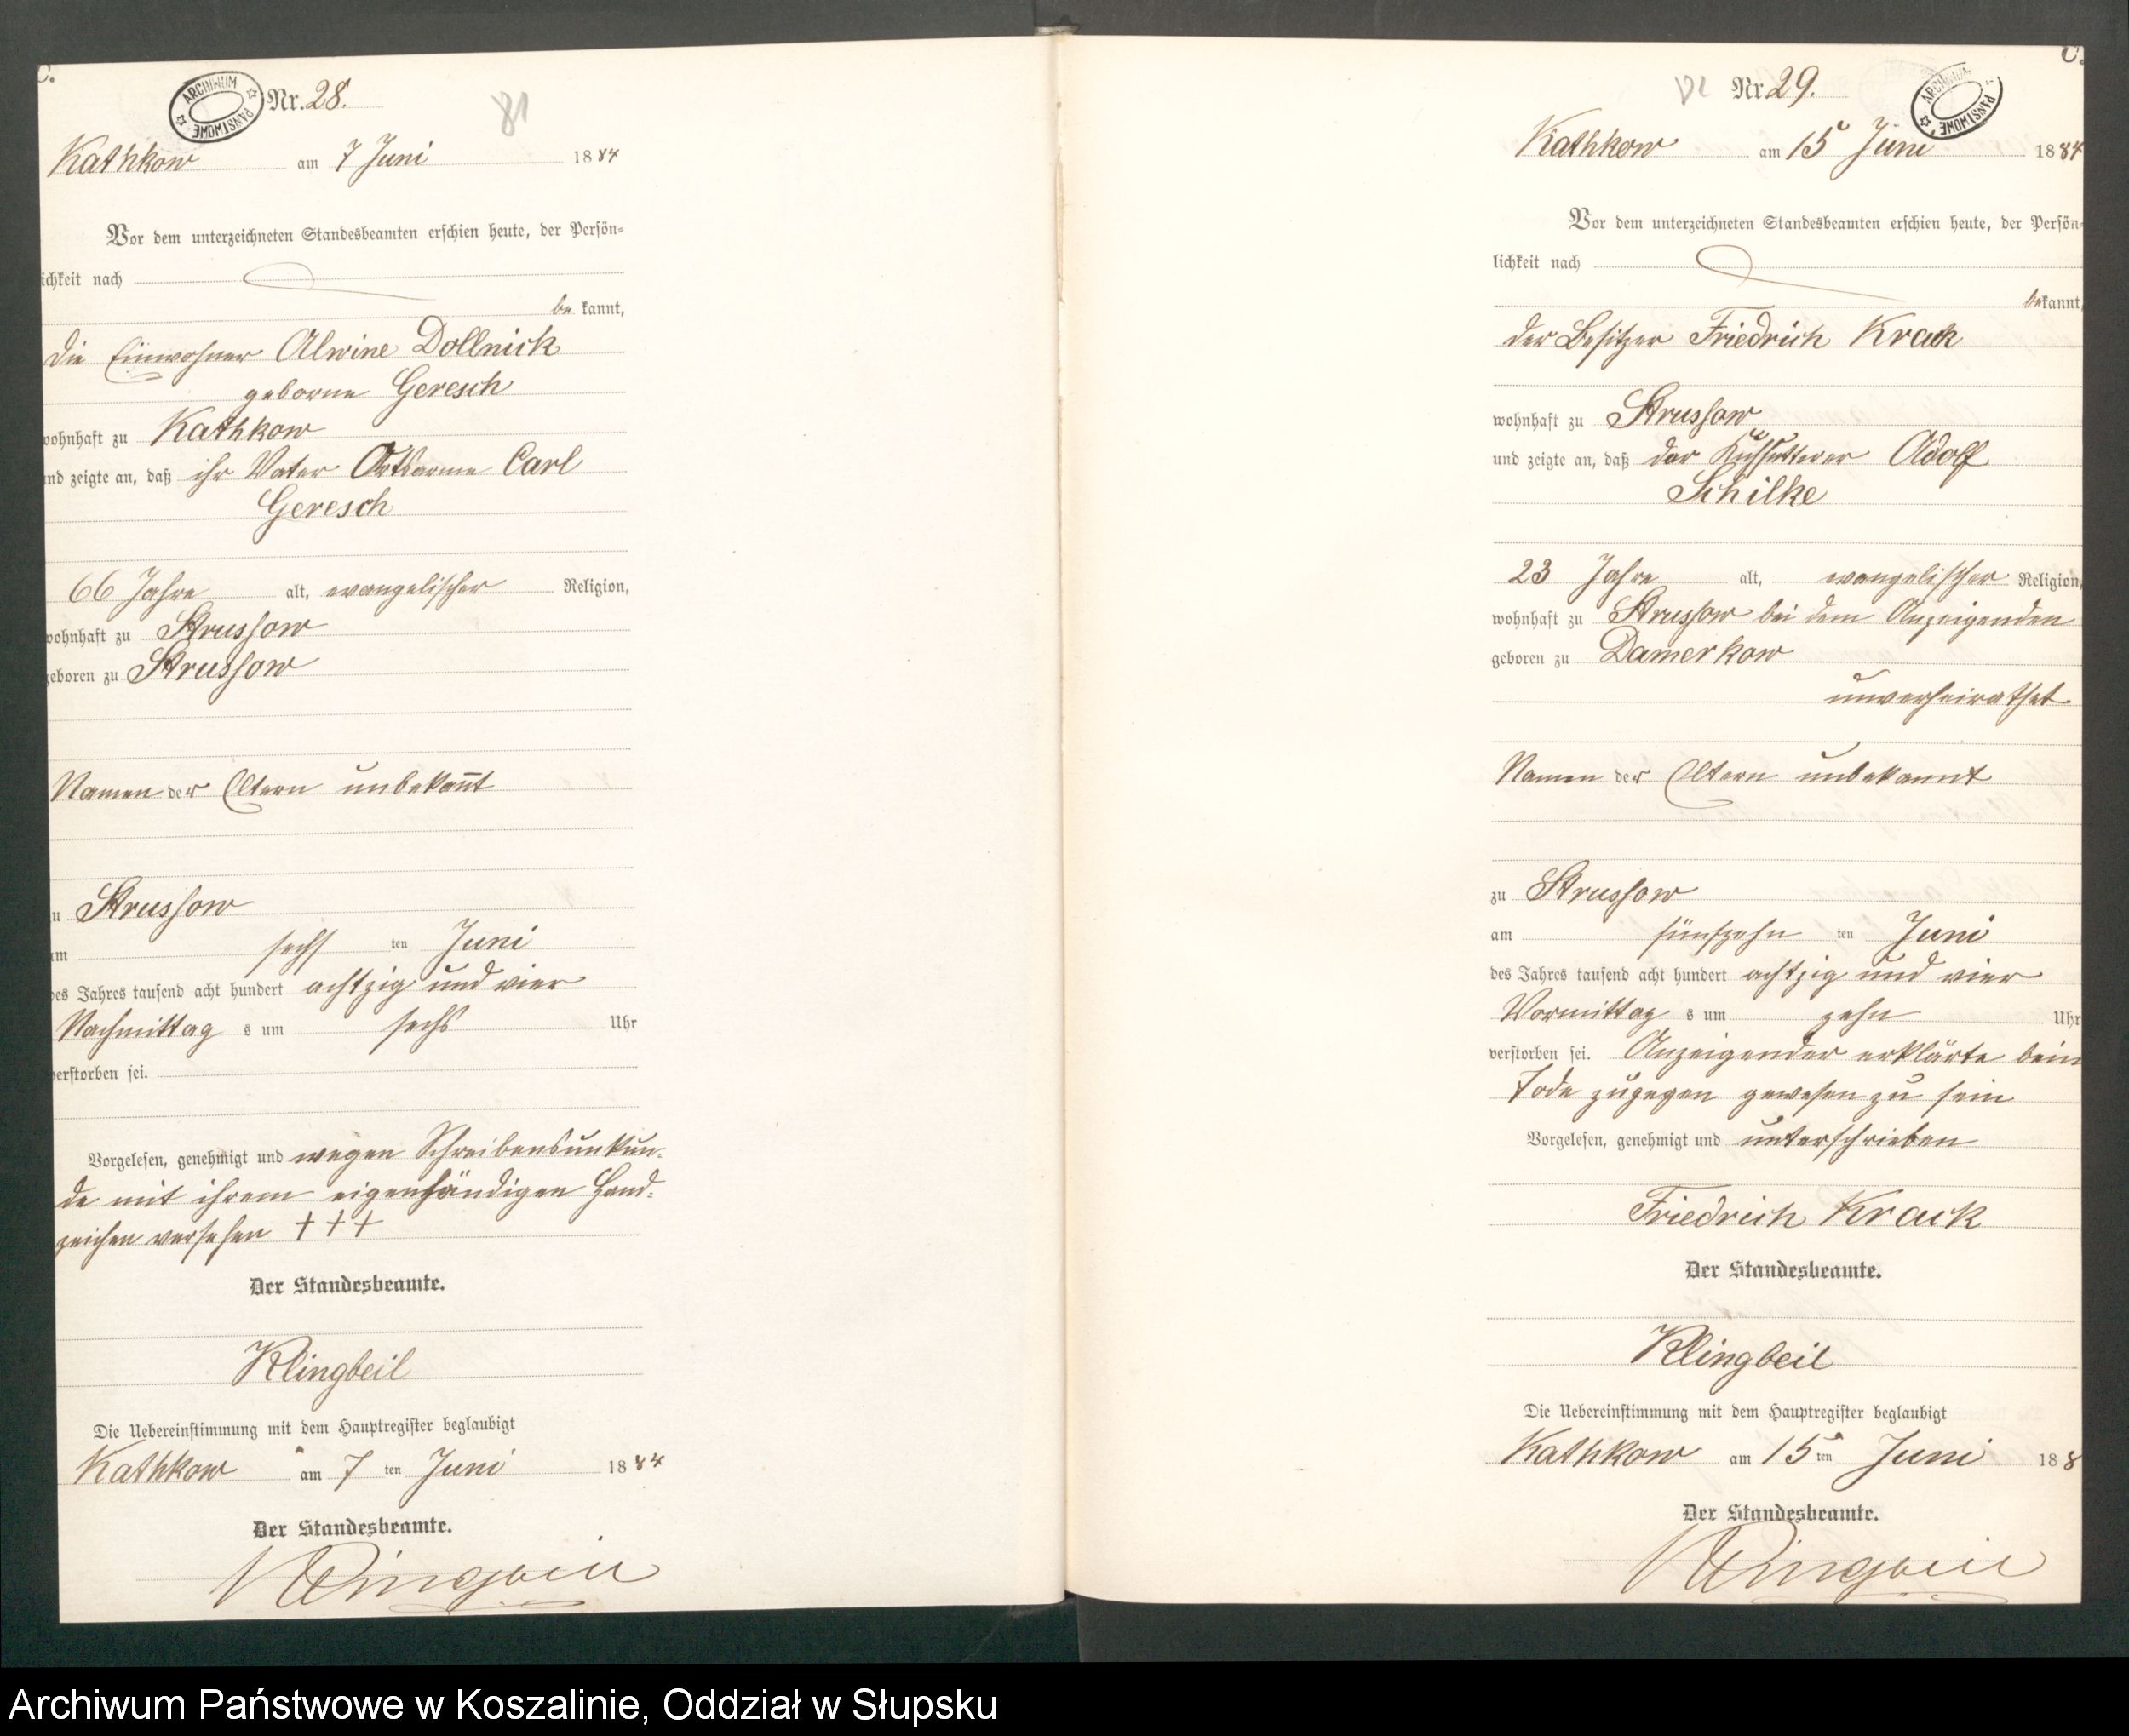 C.
ARCHIWUM PAŃSTWOWE
Nr. 28.
81
Kathkow am 7 Juni 1884
Vor dem unterzeichneten Standesbeamten erschien heute, der Persön-
ichkeit nach
be kannt,
die Einwohner Alwine Dollnick
geborne Geresch
wohnhaft zu Kathkow
und zeigte an, daß ihr Vater Ortsarme Carl
Geresch
66 Jahre alt, evangelischer Religion,
wohnhaft zu Strussow
geboren zu Strussow
Namen der Eltern unbekannt
zu Strussow
am sechs ten Juni
des Jahres tausend acht hundert achtzig und vier
Nachmittag s um sechs Uhr
verstorben sei.
Vorgelesen, genehmigt und wegen Schreibensunkun-
de mit ihrem eigenhändigen Hand-
zeichen versehen + + +
Der Standesbeamte.
Klingbeil
Die Uebereinstimmung mit dem Hauptregister beglaubigt
Kathkow am 7 ten Juni 1884
Der Standesbeamte.
Klingbeil
C.
ARCHIWUM PAŃSTWOWE
Nr 29.
Kathkow am 15 Juni 1884
Vor dem unterzeichneten Standesbeamten erschien heute, der Persön-
lichkeit nach
bekannt,
der Besitzer Friedrich Krack
wohnhaft zu Strussow
und zeigte an, daß der Kuhfütterer Adolf
Schilke
23 Jahre alt, evangelischer Religion,
wohnhaft zu Strussow bei dem Anzeigenden
geboren zu Damerkow
unverheirathet
Namen der Eltern unbekannt
zu Strussow
am fünfzehn ten Juni
des Jahres tausend acht hundert achtzig und vier
Vormittag s um zehn Uhr
verstorben sei. Anzeigender erklärte beim
Tode zugegen gewesen zu sein
Vorgelesen, genehmigt und unterschrieben
Friedrich Krack
Der Standesbeamte.
Klingbeil
Die Uebereinstimmung mit dem Hauptregister beglaubigt
Kathkow am 15 ten Juni 188
Der Standesbeamte.
Klingbeil
Archiwum Państwowe w Koszalinie, Oddział w Słupsku